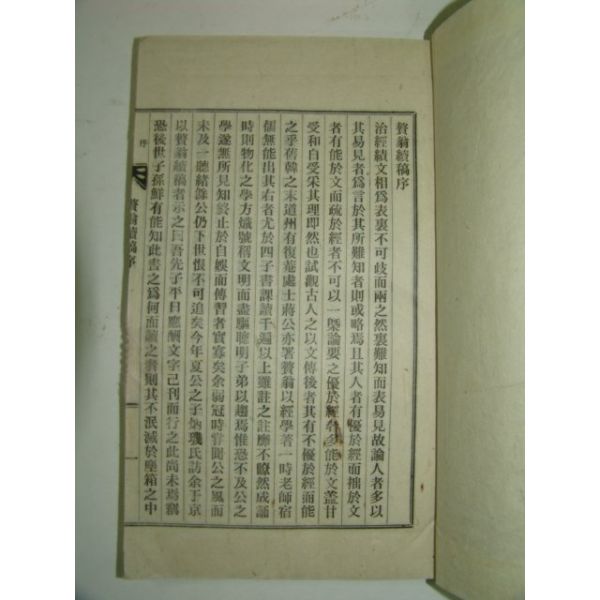 贅翁續稿序
治經績文相爲表裏不可歧而兩之然裏難知而表易見故論人者多以
其易見者爲言於其所難知者則或略焉且其人者有優於經而拙於文
者有能於文而疏於經者不可以一槩論要之優於經者多能於文蓋甘
受和白受采其理即然也試觀古人之以文傳後者其有不優於經而能
之乎舊韓之末道州有復菴處士蔣公亦署贅翁以經學著一時老師宿
儒無能出其右者尤於四子書課讀千遍以上雖註之註靡不瞭然成誦
時則物化之學方熾號稱文明而盡驅聰明子弟以趨焉惟恐不及公之
學遂無所見知終止於自娛而傳習者實寡矣余弱冠時嘗聞公之風而
未及一聽緒餘公仍下世恨不可追矣今年夏公之子炳 氏訪余于京
以贅翁續稿者示之曰吾先子平日應酬文字已刊而行之此尚未焉竊
恐後世子孫鮮有能知此書之爲何而讀之者則其不泯滅於塵箱之中
贅翁續稿序
序